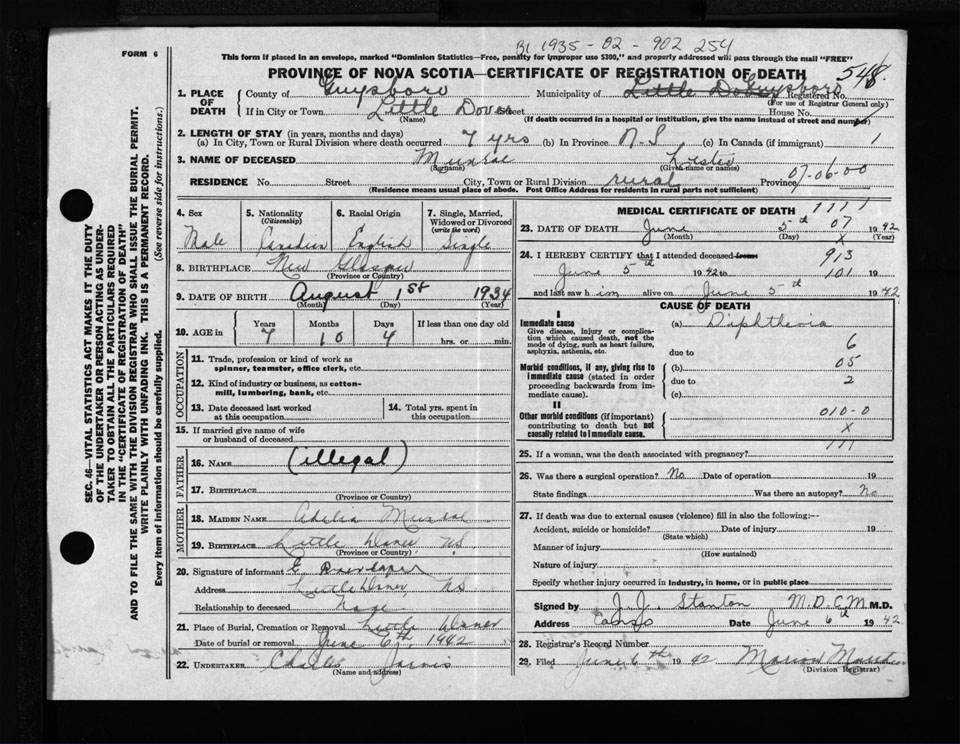 B1 1935-02-902 254
FORM 6
This form if placed in an envelope, marked "Dominion Statistics—Free, penalty for improper use $300," and properly addressed will pass through the mail "FREE"
PROVINCE OF NOVA SCOTIA—CERTIFICATE OF REGISTRATION OF DEATH 548
1. PLACE OF DEATH County of Guysboro Municipality of Little Do Guysboro Registered No.
(For use of Registrar General only)
If in City or Town Little Dover Street House No.
(Name) (If death occurred in a hospital or institution, give the name instead of street and number)
2. LENGTH OF STAY (in years, months and days)
(a) In City, Town or Rural Division where death occurred 7 yrs (b) In Province N.S (c) In Canada (if immigrant) 1
3. NAME OF DECEASED
(Surname) (Given name or names)
07-06-00
RESIDENCE No. Street City, Town or Rural Division rural Province
(Residence means usual place of abode. Post Office Address for residents in rural parts not sufficient)
4. Sex Male
5. Nationality (Citizenship) Canadian
6. Racial Origin English
7. Single, Married, Widowed or Divorced (write the word) Single
8. BIRTHPLACE New Glasgow
(Province or Country)
9. DATE OF BIRTH August 1st 1934
(Month) (Day) (Year)
10. AGE in Years Months Days If less than one day old
7 10 4 hrs. or min.
OCCUPATION
11. Trade, profession or kind of work as spinner, teamster, office clerk, etc.
12. Kind of industry or business, as cotton-mill, lumbering, bank, etc.
13. Date deceased last worked at this occupation
14. Total yrs. spent in this occupation
15. If married give name of wife or husband of deceased
FATHER
16. NAME (illegal)
17. BIRTHPLACE
(Province or Country)
MOTHER
18. MAIDEN NAME Adelia
19. BIRTHPLACE Little Dover NS
(Province or Country)
20. Signature of informant E
Address Little Dover NS
Relationship to deceased None
21. Place of Burial, Cremation or Removal Little Dover
Date of burial or removal June 6th, 1942
22. UNDERTAKER Charles Jarvis
(Name and address)
MEDICAL CERTIFICATE OF DEATH 1111
23. DATE OF DEATH June 5th 07 1942
(Month) (Day) X (Year)
24. I HEREBY CERTIFY that I attended deceased from 913
June 5th 1942 to 101 19
and last saw h im alive on June 5th 1942
CAUSE OF DEATH
I
Immediate cause
Give disease, injury or complication which caused death, not the mode of dying, such as heart failure, asphyxia, asthenia, etc.
(a) Diphtheria
due to 6
Morbid conditions, if any, giving rise to immediate cause (stated in order proceeding backwards from immediate cause).
(b) 05
due to 2
(c)
II
Other morbid conditions (if important) contributing to death but not causally related to immediate cause.
010-0
X
25. If a woman, was the death associated with pregnancy? 111
26. Was there a surgical operation? No Date of operation 19
State findings Was there an autopsy? No
27. If death was due to external causes (violence) fill in also the following:—
Accident, suicide or homicide? Date of injury 19
(State which)
Manner of injury
(How sustained)
Nature of injury
Specify whether injury occurred in industry, in home, or in public place
Signed by J. J. Stanton M.D.C.M. M.D.
Address Canso Date June 6th 1942
28. Registrar's Record Number
29. Filed June 6th 1942 Marion
(Division Registrar)
SEC. 46—VITAL STATISTICS ACT MAKES IT THE DUTY
OF THE UNDERTAKER OR PERSON ACTING AS UNDER-
TAKER TO OBTAIN ALL THE PARTICULARS REQUIRED
IN THE "CERTIFICATE OF REGISTRATION OF DEATH"
AND TO FILE THE SAME WITH THE DIVISION REGISTRAR WHO SHALL ISSUE THE BURIAL PERMIT.
WRITE PLAINLY WITH UNFADING INK. THIS IS A PERMANENT RECORD.
Every item of information should be carefully supplied. (See reverse side for instructions.)